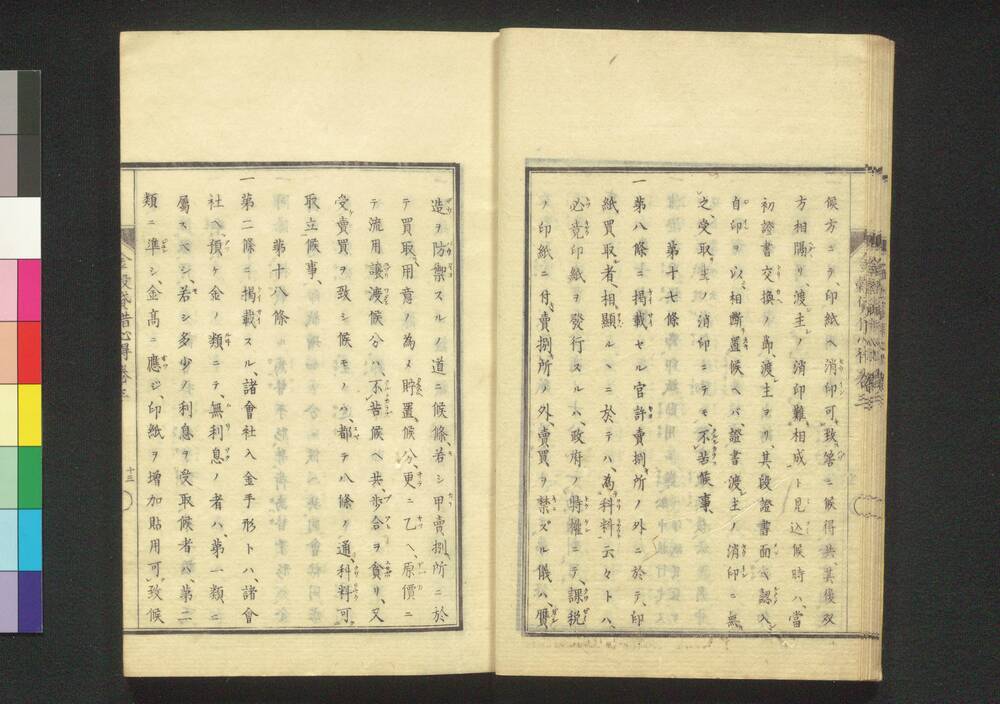 候方ニテ、印紙ヘ消印可致筈ニ候得共、其後双
方相隔リ、渡主ノ消印難相成ト見込候時ハ、當
初證書交換ノ節、渡主ヨリ其段證書面ヘ認入、
自印ヲ以相斷置候ヘバ、證書渡主ノ消印ニ無
之、受取主ノ消印ニテモ不苦候事、
第十七條
一第八條ニ掲載セル官許賣捌所ノ外ニ於テ、印
紙買取者、相顯ルヽニ於テハ、為科料云々トハ、
必竟印紙ヲ發行スルハ、政府ノ特權ニテ、課税
ノ印紙ニ付、賣捌所ノ外、賣買ヲ禁ズル儀ハ、贋
造ヲ防禦スルノ道ニ候條、若シ甲賣捌所ニ於
テ買取、用意ノ為メ貯置候分、更ニ乙ヘ、原價ニ
テ流用讓渡候分ハ不苦候ヘ共、歩合ヲ貪リ、又
受賣買ヲ致シ候モノハ、都テ八條ノ通、科料可
取立候事、
第十八條
一第二條ニ掲載スル、諸會社入金手形トハ、諸會
社ヘ預ケ金ノ類ニテ、無利息ノ者ハ、第一類ニ
屬スベシ、若シ多少ノ利息ヲ受取候者ハ、第二
類ニ準シ、金高ニ應ジ、印紙ヲ増加貼用可致候
十三